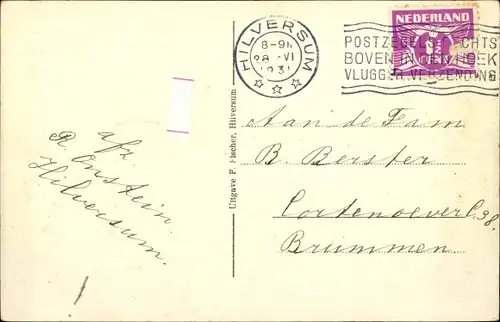 HILVERSUM
8-9N
VI
POSTZEGELS RECHTS
BOVEN IN DEN HOEK
VLUGGER VERZENDING
NEDERLAND
CENT
afz
R. Onstein.
Hilversum.
Uitgave F. Fischer, Hilversum
Aan de Fam
B. Berster
Cortenoever C 98.
Brummen.